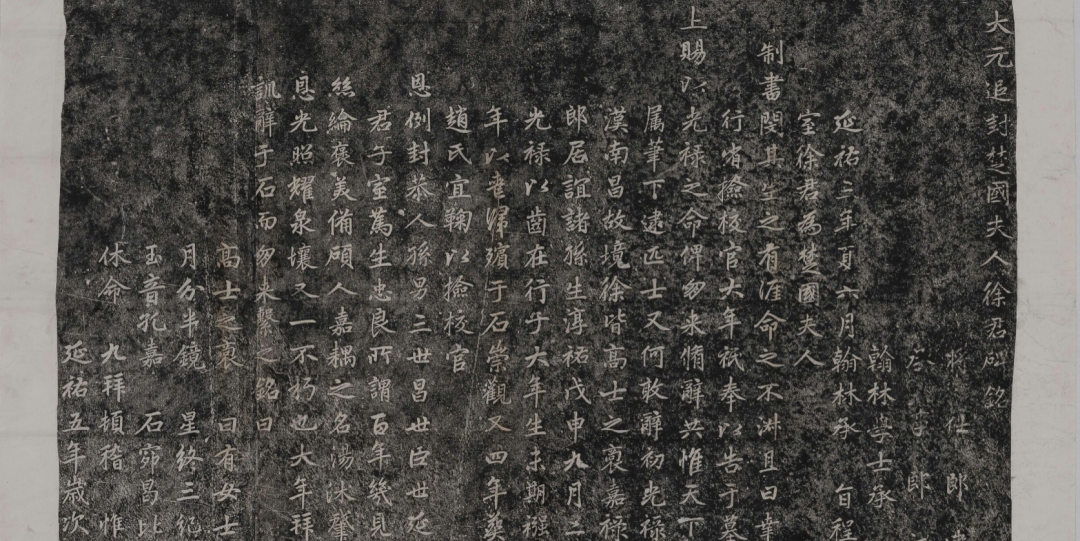 大元追封楚國夫人徐君碑銘
將仕郎
郎
翰林學士承
延祐三年夏六月翰林承旨程
室徐君為楚國夫人
制書閔其生之有涯命之不淋且曰幸
行省撿校官大年祇奉以告于墓
上賜以光祿之命俾勿來脩辭共惟天下
属筆下逮匹士又何敢辭初光祿
漢南昌故境徐皆高士之裔嘉祿
郎居誼諸孫生淳祐戊申九月二
光祿以齒在行于大年生未期襁
年以喪歸殯于石崇觀又四年葬
趙氏宜鞠以撿校官
恩例封恭人孫男三世昌世臣世延
君子室篤生忠良所謂百年幾見
絲綸褒美備碩人嘉耦之名湯沐肇
恩光照耀泉壤又一不朽也大年拜
訓辭于石而勿來繫之銘曰
高士之裔 曰有女士
月分半鏡 星終三紀
玉音孔嘉 石窌昌比
休命 九拜頓稽 惟
延祐五年歲次